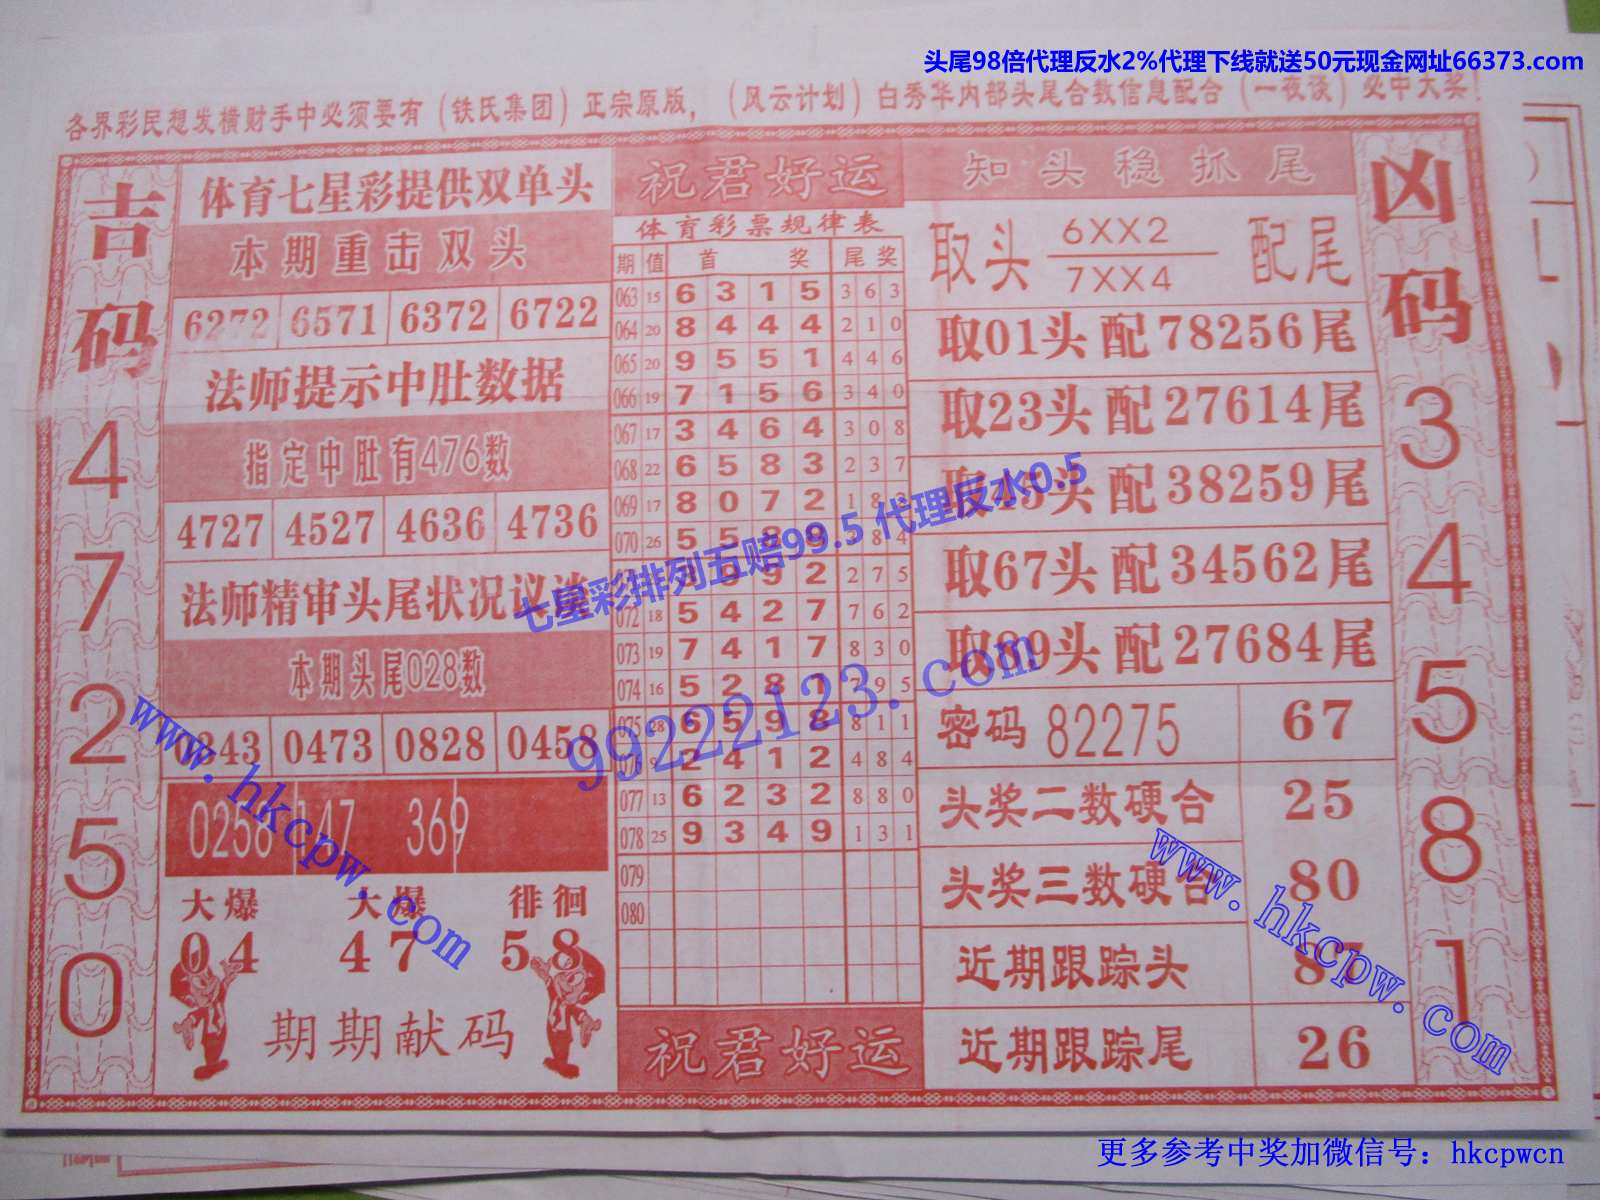 头尾98倍代理反水2%代理下线就送50元现金网址66373.com
各界彩民想发横财手中必须要有（铁氏集团）正宗原版，（风云计划）白秀华内部头尾合数信息配合（一夜谈）必中大奖！
吉码
4
7
2
5
0
体育七星彩提供双单头
本期重击双头
6272 6571 6372 6722
法师提示中肚数据
指定中肚有476数
4727 4527 4636 4736
法师精审头尾状况议
本期头尾028数
0243 0473 0828 0458
0258 147 369
大爆 大爆 徘徊
04 47 58
期期献码
祝君好运
体育彩票规律表
期 值 首 奖 尾 奖
063 15 6 3 1 5 3 6 3
064 20 8 4 4 4 2 1 0
065 20 9 5 5 1 4 4 6
066 19 7 1 5 6 3 4 0
067 17 3 4 6 4 3 0 8
068 22 6 5 8 3 2 3 7
069 17 8 0 7 2 1 8
070 26 5 5 8 8 4
9 2 2 7 5
072 18 5 4 2 7 7 6 2
073 19 7 4 1 7 8 3 0
074 16 5 2 8 1 7 9 5
075 28 6 5 9 8 8 1 1
076 9 2 4 1 2 4 8 4
077 13 6 2 3 2 8 8 0
078 25 9 3 4 9 1 3 1
079
080
祝君好运
知头稳抓尾
取头 6XX2 配尾
7XX4
取01头 配 78256尾
取23头 配 27614尾
取45头 配 38259尾
取67头 配 34562尾
取89头 配 27684尾
密码 82275 67
头奖二数硬合 25
头奖三数硬合 80
近期跟踪头 8
近期跟踪尾 26
凶码
3
4
5
8
1
七星彩排列五赔99.5 代理反水0.5
99222123.com
www.hkcpw.com
www.hkcpw.com
更多参考中奖加微信号：hkcpwcn